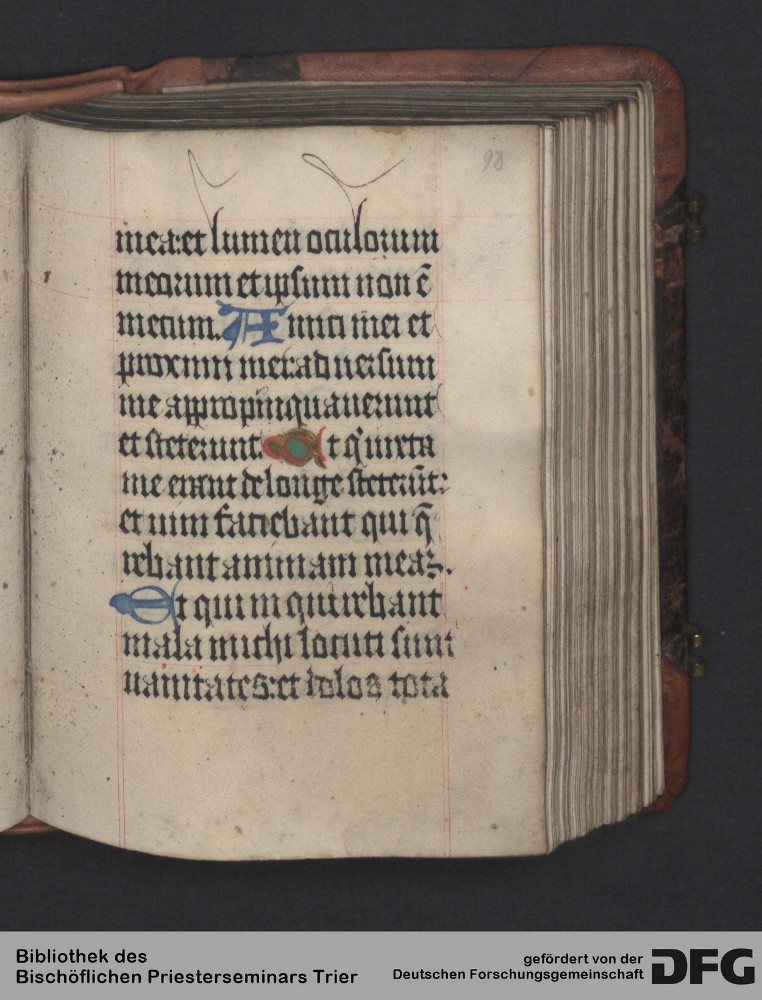 98
mea: et lumen oculorum
meorum et ipsum non ē
mecum. Amici mei et
proximi mei: aduersum
me appropinquauerunt
et steterunt. Et q' iuxta
me erant de longe steterūt:
et uim faciebant qui q̄
rebant animam meaz.
Et qui inquirebant
mala michi locuti sunt
uanitates: et dolos tota
Bibliothek des
Bischöflichen Priesterseminars Trier
gefördert von der
Deutschen Forschungsgemeinschaft
DFG